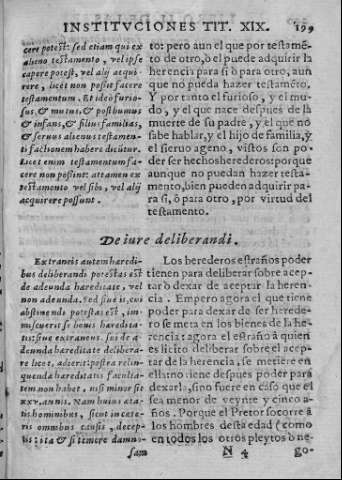 INSTITVCIONES TIT. XIX. 199
cere potest: sed etiam qui ex
alieno testamento, vel ipse
capere potest, vel alij acqui-
rere, licet non possit facere
testamentum. Et ideo furio-
sus, & mutus, & posthumus
& infans, & filius familias,
& seruus alienus testamen-
ti factionem habere dicūtur.
Licet enim testamentum fa-
cere non possint: attamen ex
testamento, vel sibi, vel alij
acquirere possunt.
to: pero aun el que por testamē-
to de otro, o el puede adquirir la
herencia para si ò para otro, aun
que no pueda hazer testamēto.
Y por tanto el furioso, y el mu-
do, y el que nace despues de la
muerte de su padre, y el que nò
sabe hablar, y el hijo de familia, y
el sieruo ageno, vistos son po-
der ser hechos herederos: porque
aunque no puedan hazer testa-
mento, bien pueden adquirir pa-
ra si, ô para otro, por virtud del
testamento.
De iure deliberandi.
Extraneis autem haredi-
bus deliberandi potestas est
de adeunda hareditate, vel
non adeunda. Sed siue is, cui
abstinendi potestas est, im-
miscuerit se bonis haredita-
tis: siue extraneus, cui de a-
deunda hareditate delibera-
re licet, adierit: postea relin-
quenda hareditatis faculta-
tem non habet, nisi minor sit
xxv. annis. Nam huius ata-
tis hominibus, sicut in cate-
ris omnibus causis, decep-
tis: ita & si temere damno-
sam
Los herederos estraños poder
tienen para deliberar sobre acep-
tar ò dexar de aceptar la heren-
cia. Empero agora el que tiene
poder para dexar de ser herede-
ro se meta en los bienes de la he-
rencia: agora el estraño à quien
es licito deliberar sobre el acep-
tar de la herencia, se metiere en
ella: no tiene despues poder para
dexarla, sino fuere en caso que el
sea menor de veynte y cinco a-
ños. Porque el Pretor socorre â
los hombres desta edad (como
en todos los otros pleytos ò ne-
N 4 go-